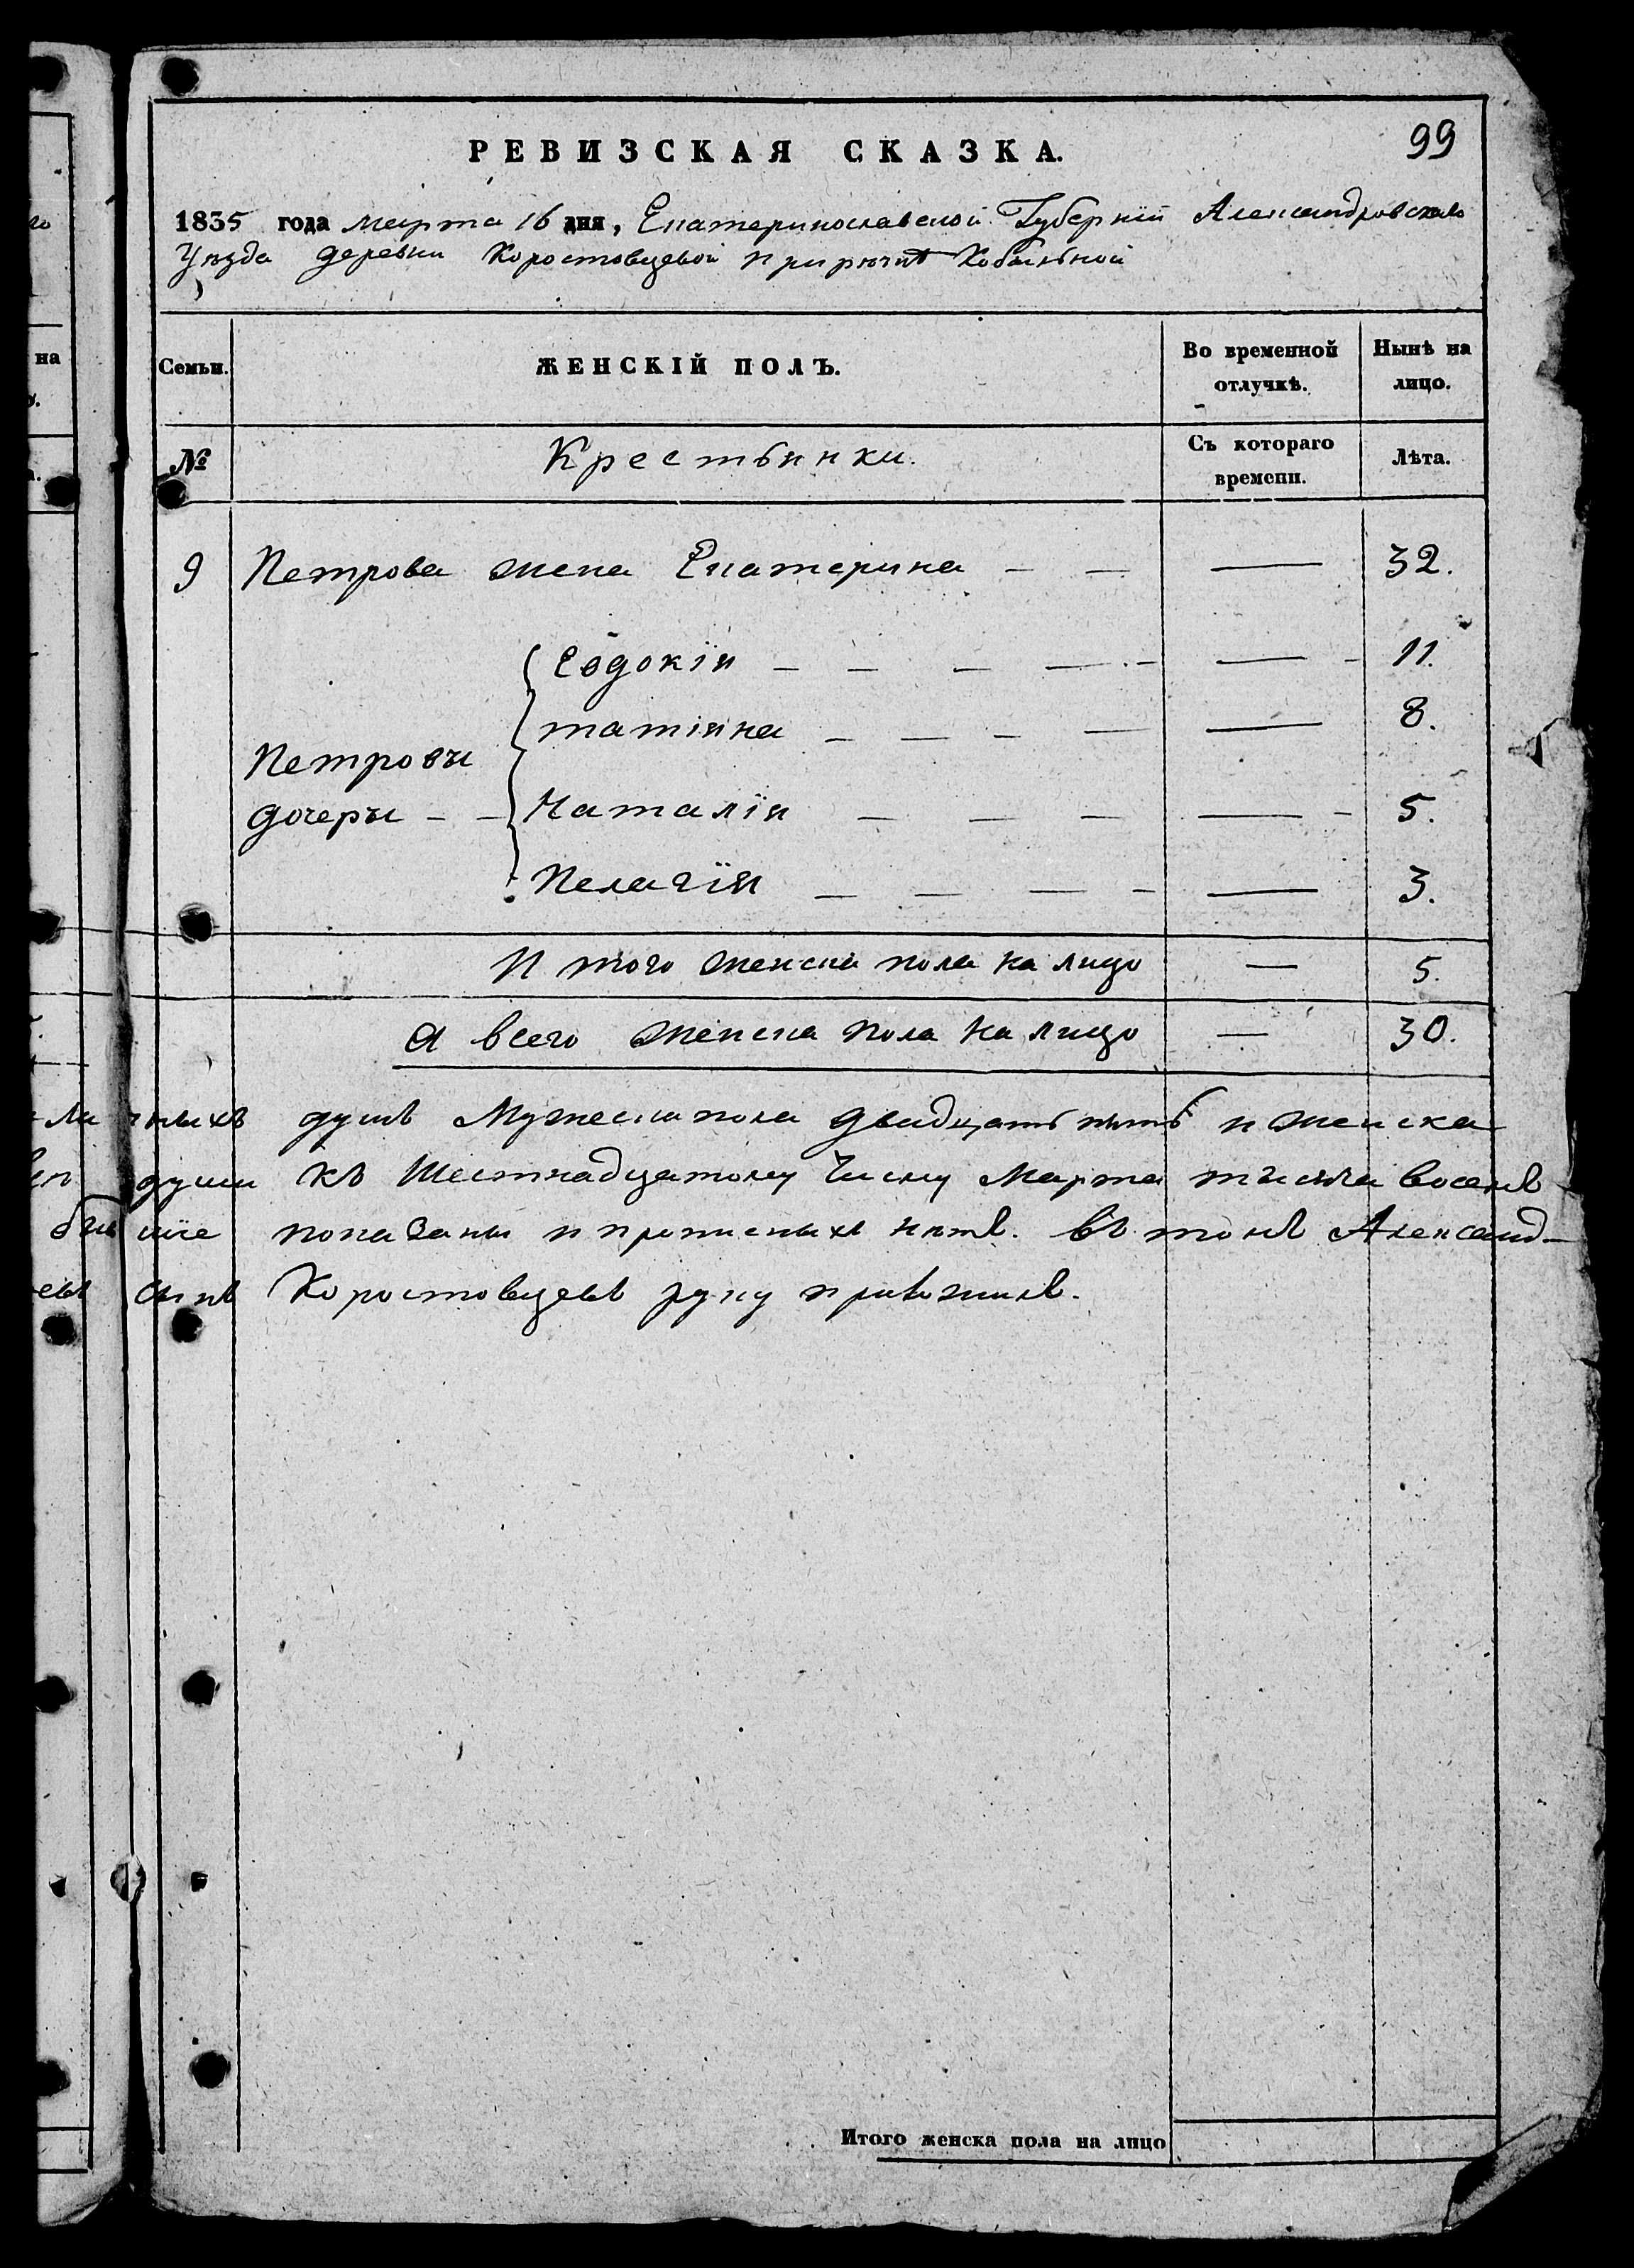 99
РЕВИЗСКАЯ СКАЗКА.
1835 года марта 16 дня, Екатеринославской Губерніи Александровскаго
Уезда деревни Коростовцевой при речкѣ Кобыльной
на
Семьи.
ЖЕНСКІЙ ПОЛЪ.
Во временной отлучкѣ.
Нынѣ на лицо.
№
Крестьянки.
Съ котораго времени.
Лѣта.
9 Петрова жена Екатерина — — — 32.
Евдокія — — — — — 11.
татіяна — — — — — 8.
Петровы
дочеры — — Наталія — — — — 5.
Пелагія — — — — — 3.
И того женска пола на лицо — 5.
А всего женска пола на лицо — 30.
личныхъ душъ Мужеска пола двадцать пять и женска
души къ Шестнадцатому Числу Марта тысяча восемъ
бывшіе показаны и прописныхъ нѣтъ. въ томъ Александ-
сынъ Коростовцевъ руку приложилъ.
Итого женска пола на лицо